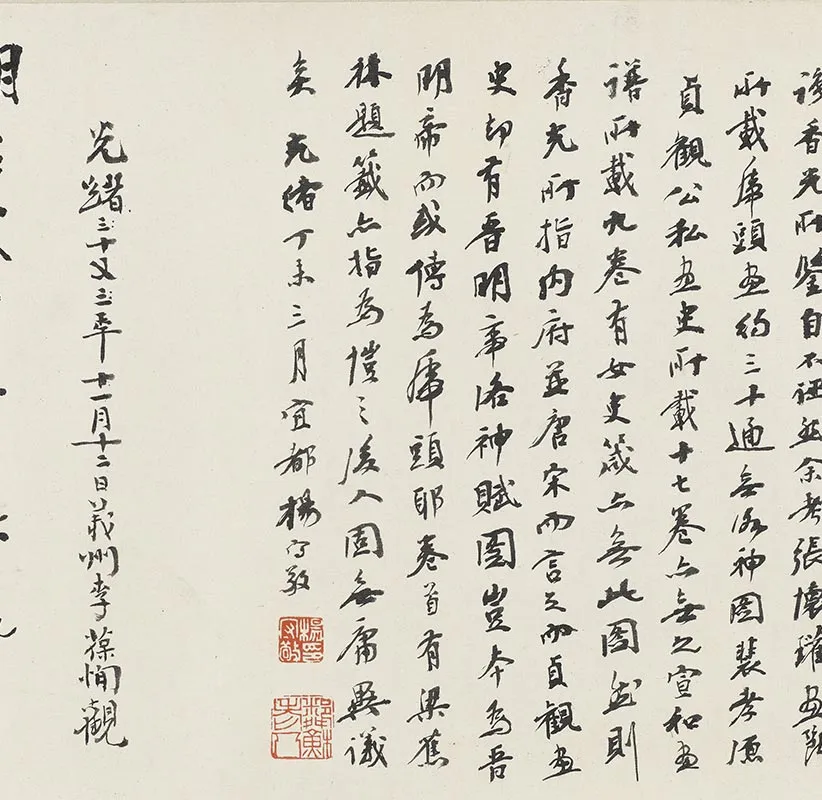 香光所鑒自不誣然余考張懷瓘畫斷
所載虎頭畫約三十通無洛神圖裴孝源
貞觀公私畫史所載十七卷亦無之宣和畫
譜所載九卷有女史箴亦無此圖然則
香光所指內府並唐宋而言之而貞觀畫
史却有晉明帝洛神賦圖豈本為晉
明帝而或傳為虎頭耶卷首有梁蕉
林題籤亦指為愷之後人固無庸異儀
矣 光緒丁未三月宜都楊守敬
楊印守敬
光緒三十又三年十一月十二日義州李葆恂觀